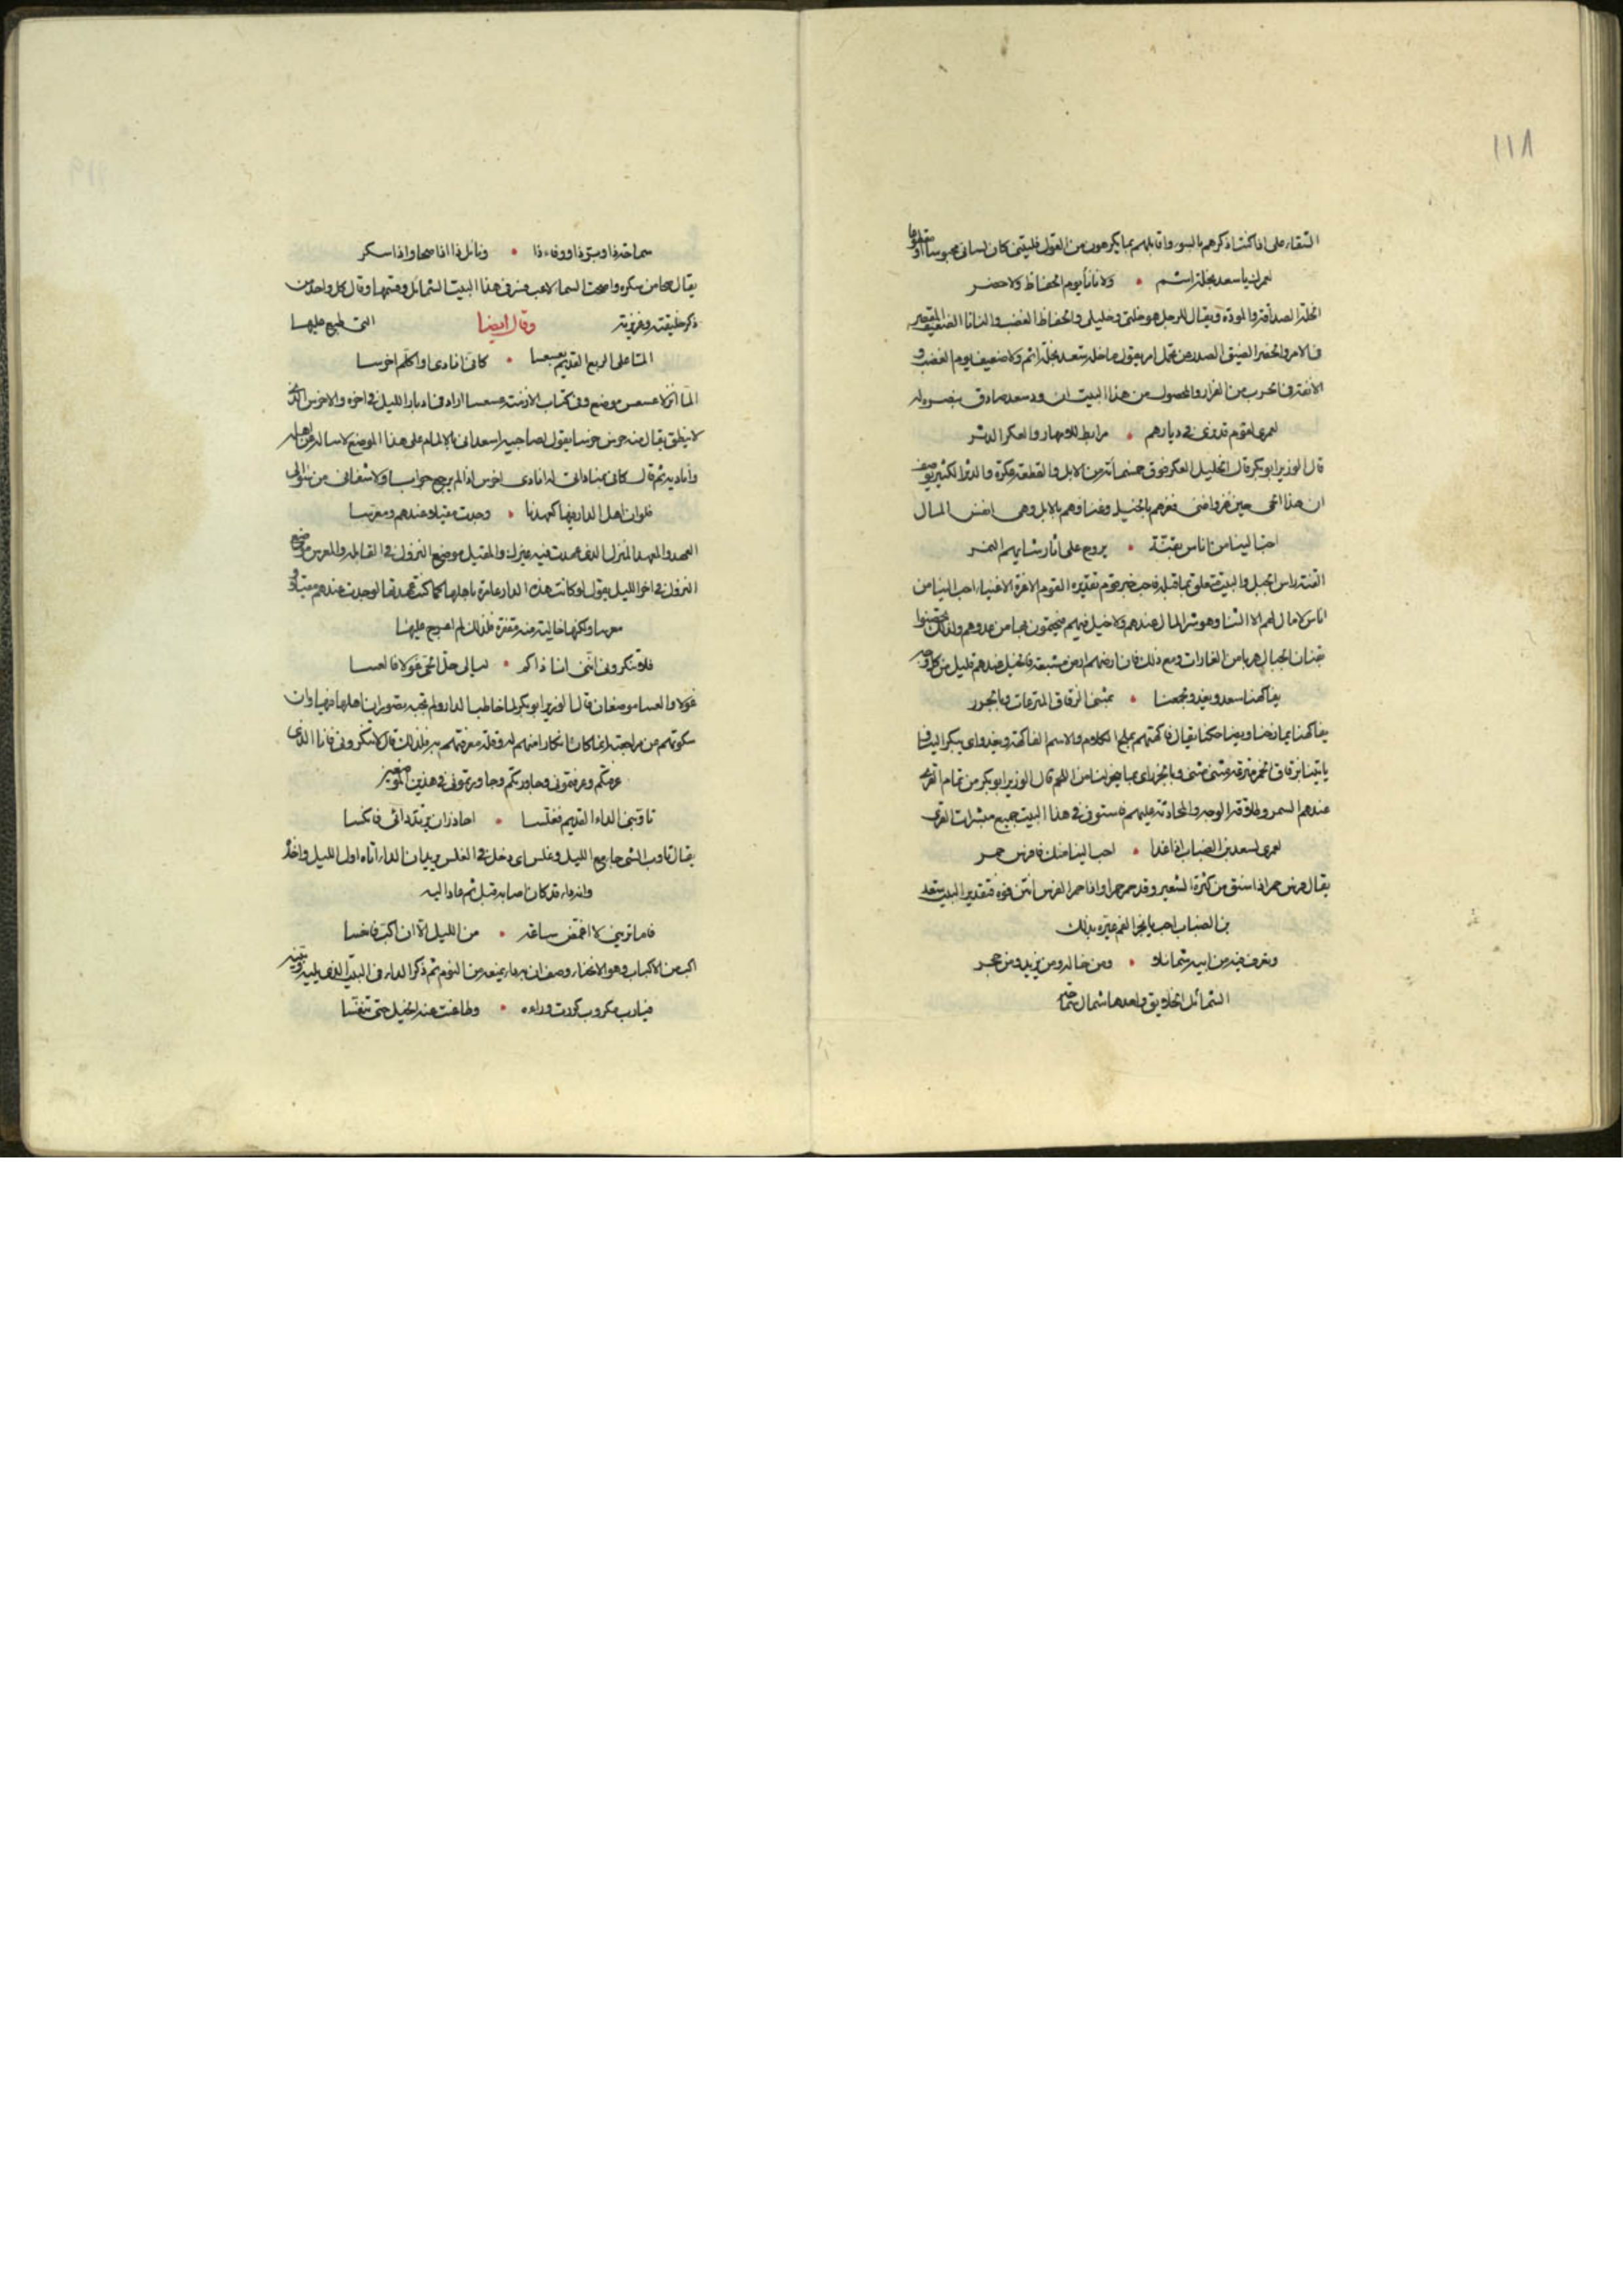 ١١٨
التقاء على اذا كنت اذكرهم بالسوء واقابلهم بما يكرهون من القول فليتنى كان لسانى محبوسا او مقطوعا
لعمرك ما سعد بخلة اثم • ولا نانأ يوم الحفاظ ولا حصر
الخلة الصداقة والمودة ويقال للرجل هو خلتى وخليلى والحفاظ الغضب والنانا الضعيف المقصر
فى الامر والحصر الضيق الصدر من تحمل امر يقول ما خلة سعد بخلة اثم ولا ضعيف يوم الغضب و
الانفة فى الحرب من الفرار والمحصول من هذا البيت ان ود سعد صادق ينصره له
لعمرى لقوم قد نرى فى ديارهم • مرابط للامهار والعكر الدثر
قال الوزير ابو بكر قال الخليل العكر فوق خمسمائة من الابل والقطعة عكرة والدثر الكثير يوصف
ان هذا الحى حين غزو اغنى فغزهم بالخيل وغناوهم بالابل وهى انفس المال
احب الينا من اناس بقنة • يروح على اثار شايهم النمر
القنة راس الجبل والبيت متعلق بما قبله فاحب خبر قوم تقديره القوم الاعزة الاغنياء احب الينا من
اناس لا مال لهم الا الشا وهو شر المال عندهم ولا خيل فيهم فيحتمون بها من عدوهم ولذلك تحصنوا
بقنان الجبال هربا من الغارات ومع ذلك فان ارضهم ارض مسبعة فالخيل عندهم قليل من كل وجه
يفاكهنا سعد ويغدو لجمعنا • بمثنى الزقاق المترعات وبالجزر
يفاكهنا يمازحنا ويضاحكنا يقال فاكهتهم بملح الكلام والاسم الفاكهة ويغدو اى يبكر الينا فيا
ياتينا بزقاق الخمر مترعة مثنى مثنى وبالجزر اى بما ينحر لنا من اللحم قال الوزير ابو بكر من تمام القرى
عندهم السمر وطلاقة الوجه والمحادثة عليهم فاستوفى فى هذا البيت جميع مبشرات القرى
لعمرى لسعد بن الضباب اذا غدا • احب الينا منك فا فرس حمر
يقال فرس حمر اذا سنق من كثرة الشعير وقد حمر حمرا واذا حمر الفرس انتن فوه فتقدير البيت سعد
بن الضباب احب يا بخر الفم عيره بذلك
وتعرف فيه من ابيه شمائلا • ومن خاله ومن يزيد ومن حجر
الشمائل الخلايق واحدها شمال
سماحة ذا وبر ذا ووفاء ذا • ونائل ذا اذا صحا واذا سكر
يقال صحا من سكره واصحت السما لا غير فسر فى هذا البيت الشمائل وقسمها وقال كل واحد من
ذكر خليقته وغريزته التى طبع عليها وقال ايضا
الما على الربع القديم بعسعسا • كانى انادى او اكلم اخرسا
الما انزلا عسعس موضع وفى كتاب الازمنة عسعسا اراد فى ادبار الليل فى اخره والاخرس الذى
لا ينطق يقال منه خرس خرسا يقول لصاحبيه اسعدانى بالالمام على هذا الموضع لاساله عن اهله
واناديه ثم قال كانى بمناداتى له انادى اخرس اذ لم يرجع جوابا ولا شفانى من سؤالى
فلو ان اهل الدار فيها كعهدنا • وجدت مقيلا عندهم ومعرسا
العهد والمعهد المنزل الذى عهدت فيه منزلك والمقيل موضع النزول فى القايلة والمعرس موضع
النزول فى اخر الليل يقول لو كانت هذه الدار عامرة باهلها كما كنت عهدتها لوجدت عندهم مقيلا و
معرسا ولكنها خالية منه مقفرة فلذلك لم اعرج عليها
فلا تنكرونى اننى انا ذاكم • ليالى حل الحى غولا فالعسا
غولا والعسا موضعان قال الوزير ابو بكر لما خاطب الدار ولم تجبه تصور ان اهلها فيها وان
سكوتهم من مراجعته انما كان انكارا منهم له وقلة معرفتهم به فلذلك قال لا تنكرونى فانا الذى
عرفتكم وعرفتمونى وجاورتكم وجاورتمونى فى هذين الموضعين
تاوبنى الداء القديم فغلسا • احاذر ان يرتد دائى فانكسا
يقال تاوب الشى جا مع الليل وغلس اى دخل فى الغلس يريد ان الداء اتاه اول الليل واخذ
وانه داء قد كان اصابه قبل ثم عاد اليه
فاما ترينى لا اغمض ساعة • من الليل الا ان اكب فانعسا
اكب من الاكباب وهو الانحناء وصف ان به داء يمنعه من النوم ثم ذكر الداء فى البيت الذى يليه
فيا رب مكروب كررت وراءه • وطاعنت عنه الخيل حتى تنفسا